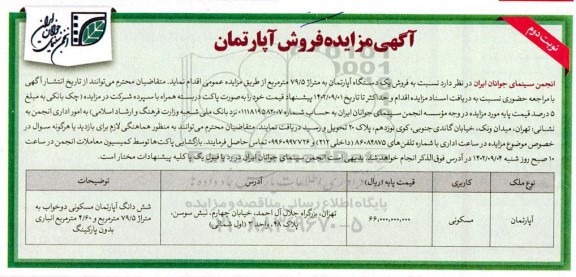 نوبت دوم
آگهی مزایده فروش آپارتمان
انجمن سینمای جوانان ایران
انجمن سینمای جوانان ایران در نظر دارد نسبت به فروش یک دستگاه آپارتمان به متراژ ۷۹/۵ مترمربع از طریق مزایده عمومی اقدام نماید. متقاضیان محترم می‌توانند از تاریخ انتشار آگهی
با مراجعه حضوری نسبت به دریافت اسناد مزایده اقدام و حداکثر تا تاریخ ۱۴۰۲/۰۹/۰۱ پیشنهاد قیمت خود را به صورت پاکت دربسته همراه با سپرده شرکت در مزایده (چک بانکی به مبلغ
۵ درصد قیمت پایه مورد مزایده در وجه مؤسسه انجمن سینمای جوانان ایران به حساب شماره ۰۱۱۱۸۱۹۵۸۲۰۰۷ نزد بانک ملی شعبه وزارت فرهنگ و ارشاد اسلامی) به امور اداری انجمن به
نشانی: تهران، میدان ونک، خیابان گاندی جنوبی، کوی نوزدهم، پلاک ۲۰ تحویل و رسید دریافت نمایند. متقاضیان محترم می‌توانند به منظور هماهنگی لازم برای بازدید یا هرگونه سوال در
خصوص موضوع مزایده در ساعت اداری با شماره تلفن‌های ۸۶۰۸۴۸۷۵ (داخلی ۲۱۲) و ۰۹۹۶۰۹۹۷۷۲۶ تماس حاصل فرمایند. بازگشایی پاکت‌ها توسط کمیسیون معاملات انجمن در ساعت
۱۰ صبح روز شنبه ۱۴۰۲/۰۹/۰۴ در آدرس فوق‌الذکر انجام خواهد شد. بدیهی است انجمن سینمای جوانان ایران در رد یا قبول یک یا کلیه پیشنهادات مختار است.
نوع ملک	کاربری	قیمت پایه (ریال)	آدرس	توضیحات
آپارتمان	مسکونی	۶۶,۰۰۰,۰۰۰,۰۰۰	تهران، بزرگراه جلال آل احمد، خیابان چهارم، نبش سوسن، پلاک ۴۸، واحد ۳ (اول شمالی)	شش دانگ آپارتمان مسکونی دوخواب به متراژ ۷۹/۵ مترمربع و ۴/۶۰ مترمربع انباری بدون پارکینگ
پایگاه اطلاع رسانی مناقصه و مزایده